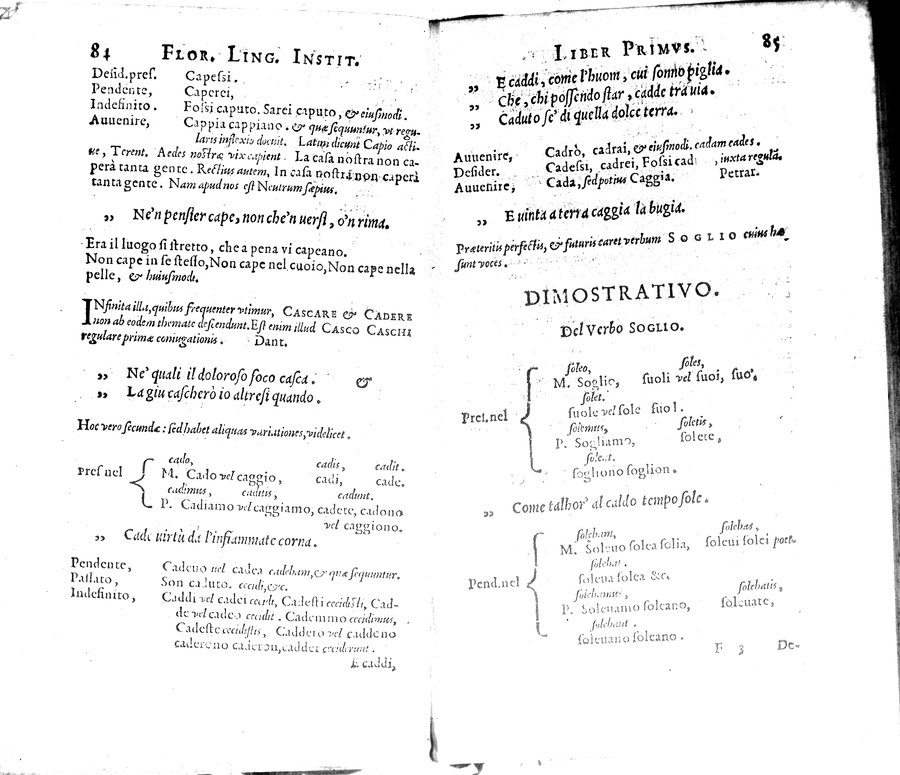 84 FLOR. LING. INSTIT.
Desid.pres. Capessi.
Pendente, Caperei,
Indefinito. Fossi caputo. Sarei caputo, & eiusmodi.
Auuenire, Cappia cappiano. & quæ sequuntur, vt regu-
laris inflexio docuit. Latini dicunt Capio acti-
ue, Terent. Aedes nostræ vix capient. La casa nostra non ca-
perà tanta gente. Rectius autem, In casa nostra non caperà
tanta gente. Nam apud nos est Neutrum sæpius.
„ Ne'n pensier cape, non che'n uersi, o'n rima.
Era il luogo si stretto, che a pena vi capeano.
Non cape in se stesso, Non cape nel cuoio, Non cape nella
pelle, & huiusmodi.
INfinita illa, quibus frequenter vtimur, CASCARE & CADERE
non ab eodem themate descendunt. Est enim illud CASCO CASCHI
regulare primæ coniugationis. Dant.
„ Ne' quali il doloroso foco casca. &
„ La giu cascherò io altresi quando.
Hoc vero secundæ: sed habet aliquas variationes, videlicet.
cado, cadis, cadit.
Pres nel M. Cado vel caggio, cadi, cade.
cadimus, caditis, cadunt.
P. Cadiamo vel caggiamo, cadete, cadono
vel caggiono.
„ Cade uirtù da l'infiammate corna.
Pendente, Cadeuo vel cadea cadebam, & quæ sequuntur.
Passato, Son caduto. cecidi, &c.
Indefinito, Caddi vel cadei cecidi, Cadesti cecidisti, Cad-
de vel cadeo cecidit. Cademmo cecidimus,
Cadeste cecidistis, Caddero vel caddeno
cadereno caderon, cadder ceciderunt.
E caddi,
LIBER PRIMVS. 85
„ E caddi, come l'huom, cui sonno piglia.
„ Che, chi possendo star, cadde tra uia.
„ Caduto se' di quella dolce terra.
Auuenire, Cadrò, cadrai, & eiusmodi. cadam cades.
Desider. Cadessi, cadrei, Fossi cad , iuxta regulā.
Auuenire, Cada, sed potius Caggia. Petrar.
„ E uinta a terra caggia la bugia.
Præteritis perfectis, & futuris caret verbum SOGLIO cuius hæ
sunt voces.
DIMOSTRATIVO.
Del Verbo SOGLIO.
soleo, soles,
M. Soglio, suoli vel suoi, suo'.
solet.
Pres.nel suole vel sole suol.
solemus, soletis,
P. Sogliamo, solete,
solent.
sogliono soglion.
„ Come talhor' al caldo tempo sole.
solebam, solebas,
M. Soleuo solea solia, soleui solei poet.
solebat.
Pend.nel soleua solea &c.
solebamus, solebatis,
P. Soleuamo soleano, soleuate,
solebant.
soleuano soleano.
F 3 De-